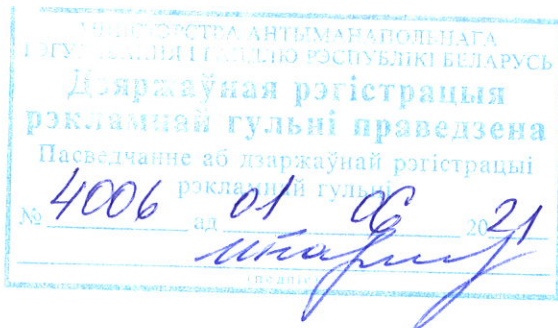 МІНІСТЭРСТВА АНТЫМАНАПОЛЬНАГА
РЭГУЛЯВАННЯ І ГАНДЛЮ РЭСПУБЛІКІ БЕЛАРУСЬ
Дзяржаўная рэгістрацыя
рэкламнай гульні праведзена
Пасведчанне аб дзяржаўнай рэгістрацыі
рэкламнай гульні
№ 4006 ад 01 06 2021
(подпіс)